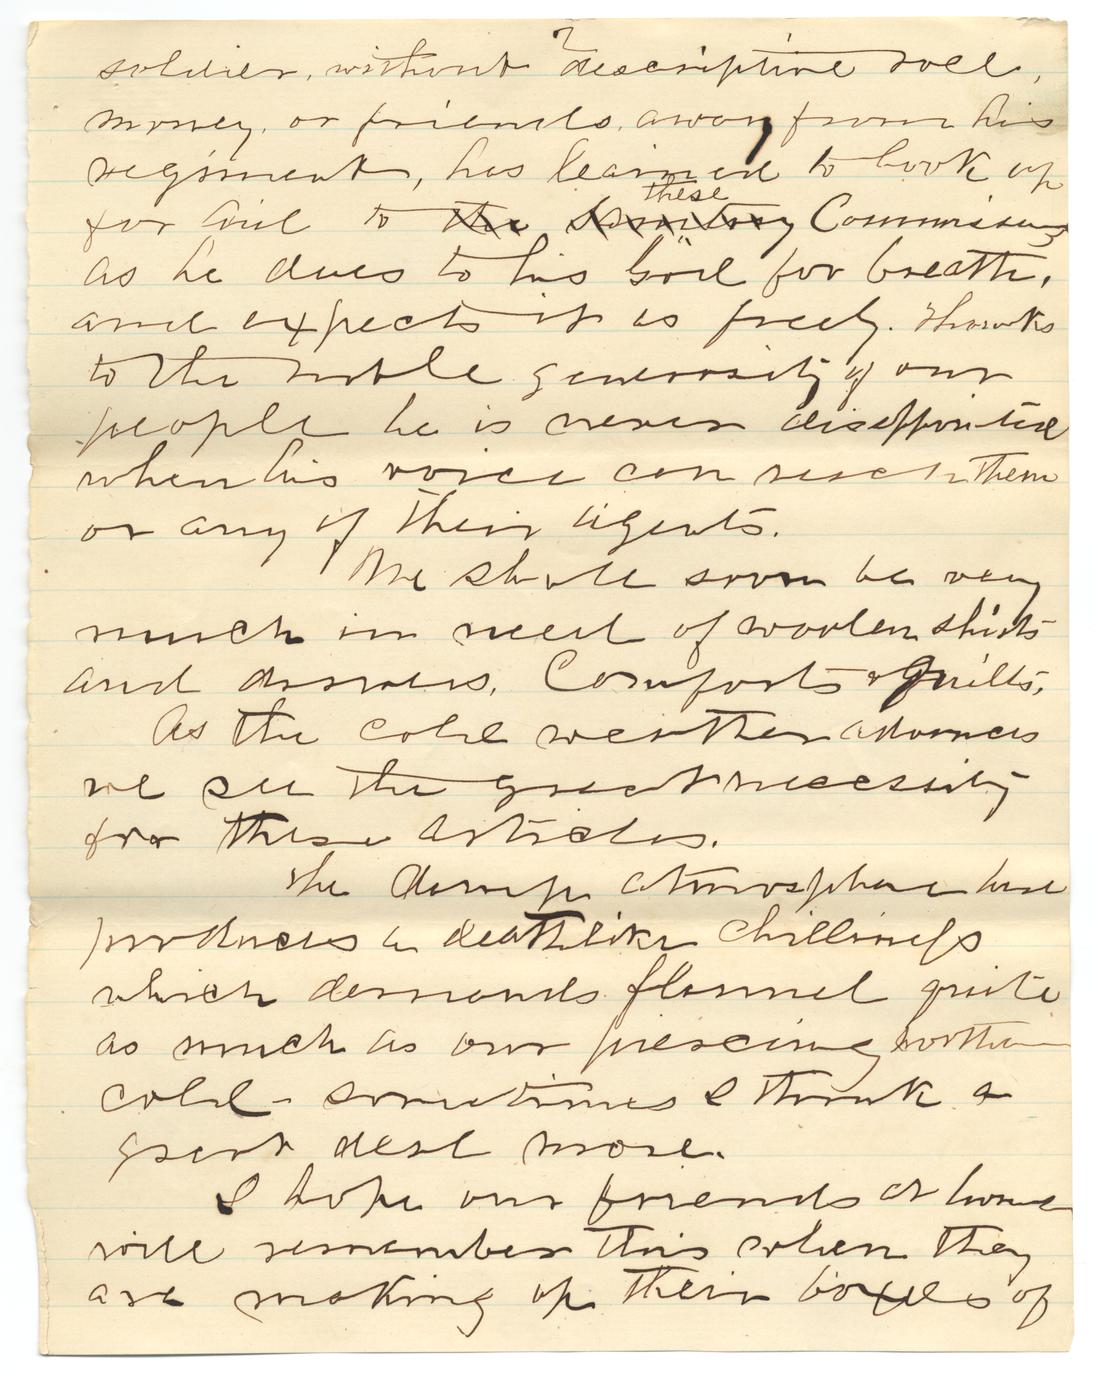 7
soldier, without descriptive roll,
money, or friends, away from his
regiment, has learned to look up
these
for aid to the Sanitary Commissions
as he does to his God for breath,
and expects it as freely. Thanks
to the noble generosity of our
people he is never disappointed
when his voice can reach them
or any of their agents.
We shall soon be very
much in need of woolen shirts
and drawers, Comforts & Quilts,
As the cold weather advances
we see the great necessity
for these articles.
The damp atmosphere here
produces a deathlike chilliness
which demands flannel quite
as much as our piercing northern
cold - sometimes I think a
great deal more.
I hope our friends at home
will remember this when they
are making up their boxes of